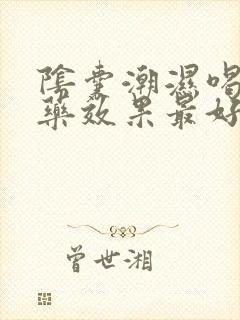 陰囊潮濕喝
藥效果最好
曾世湘